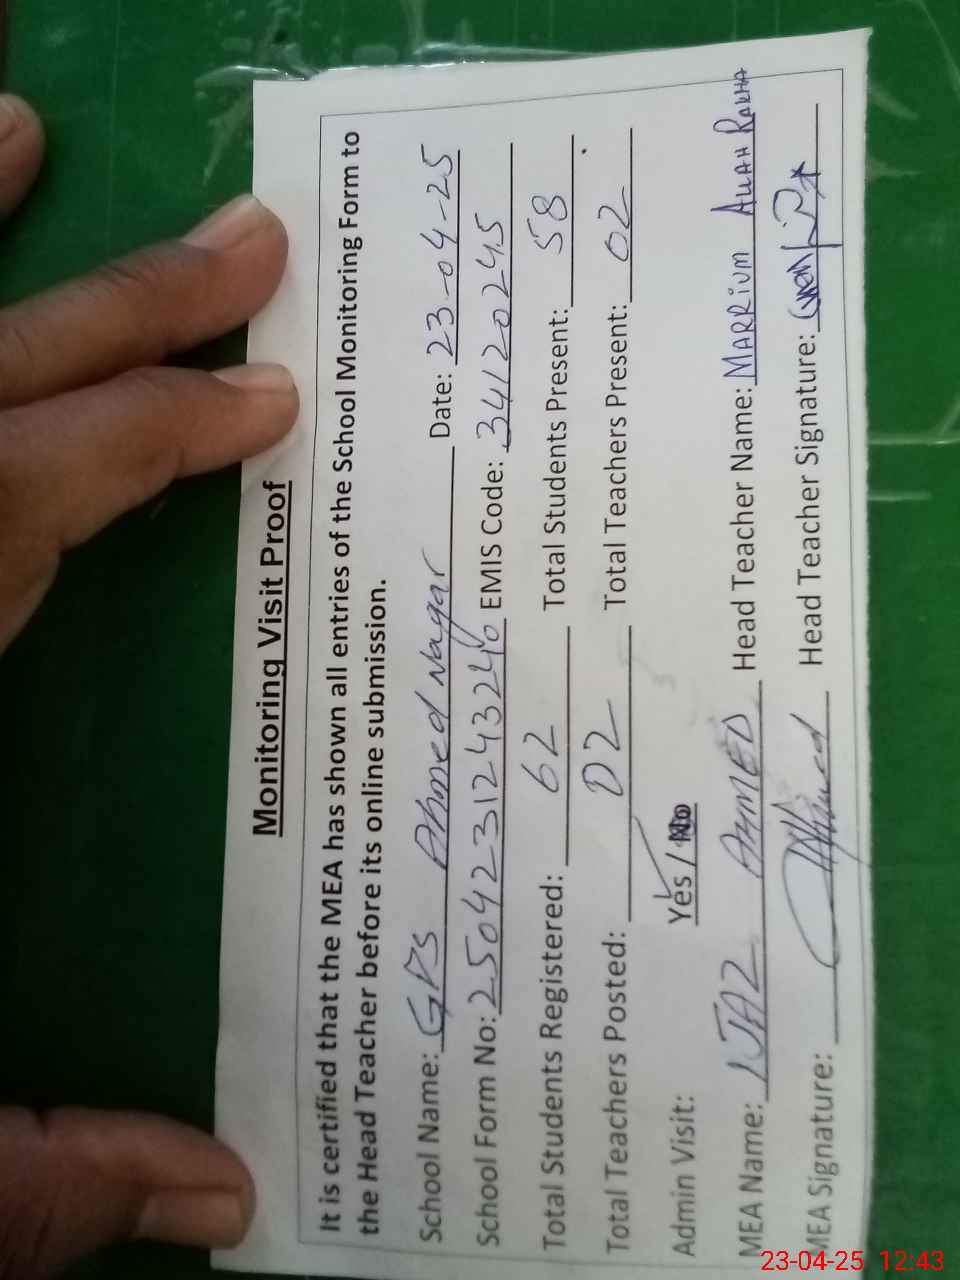 Monitoring Visit Proof
It is certified that the MEA has shown all entries of the School Monitoring Form to
the Head Teacher before its online submission.
School Name: GPS Ahmed Nagar Date: 23-04-25
School Form No: 2504231243240 EMIS Code: 34120245
Total Students Registered: 62 Total Students Present: 58
Total Teachers Posted: 02 Total Teachers Present: 02
Admin Visit: Yes / No
MEA Name: IJAZ AHMED Head Teacher Name: MARRIUM ALLAH RAKHA
MEA Signature: Head Teacher Signature:
23-04-25 12:43